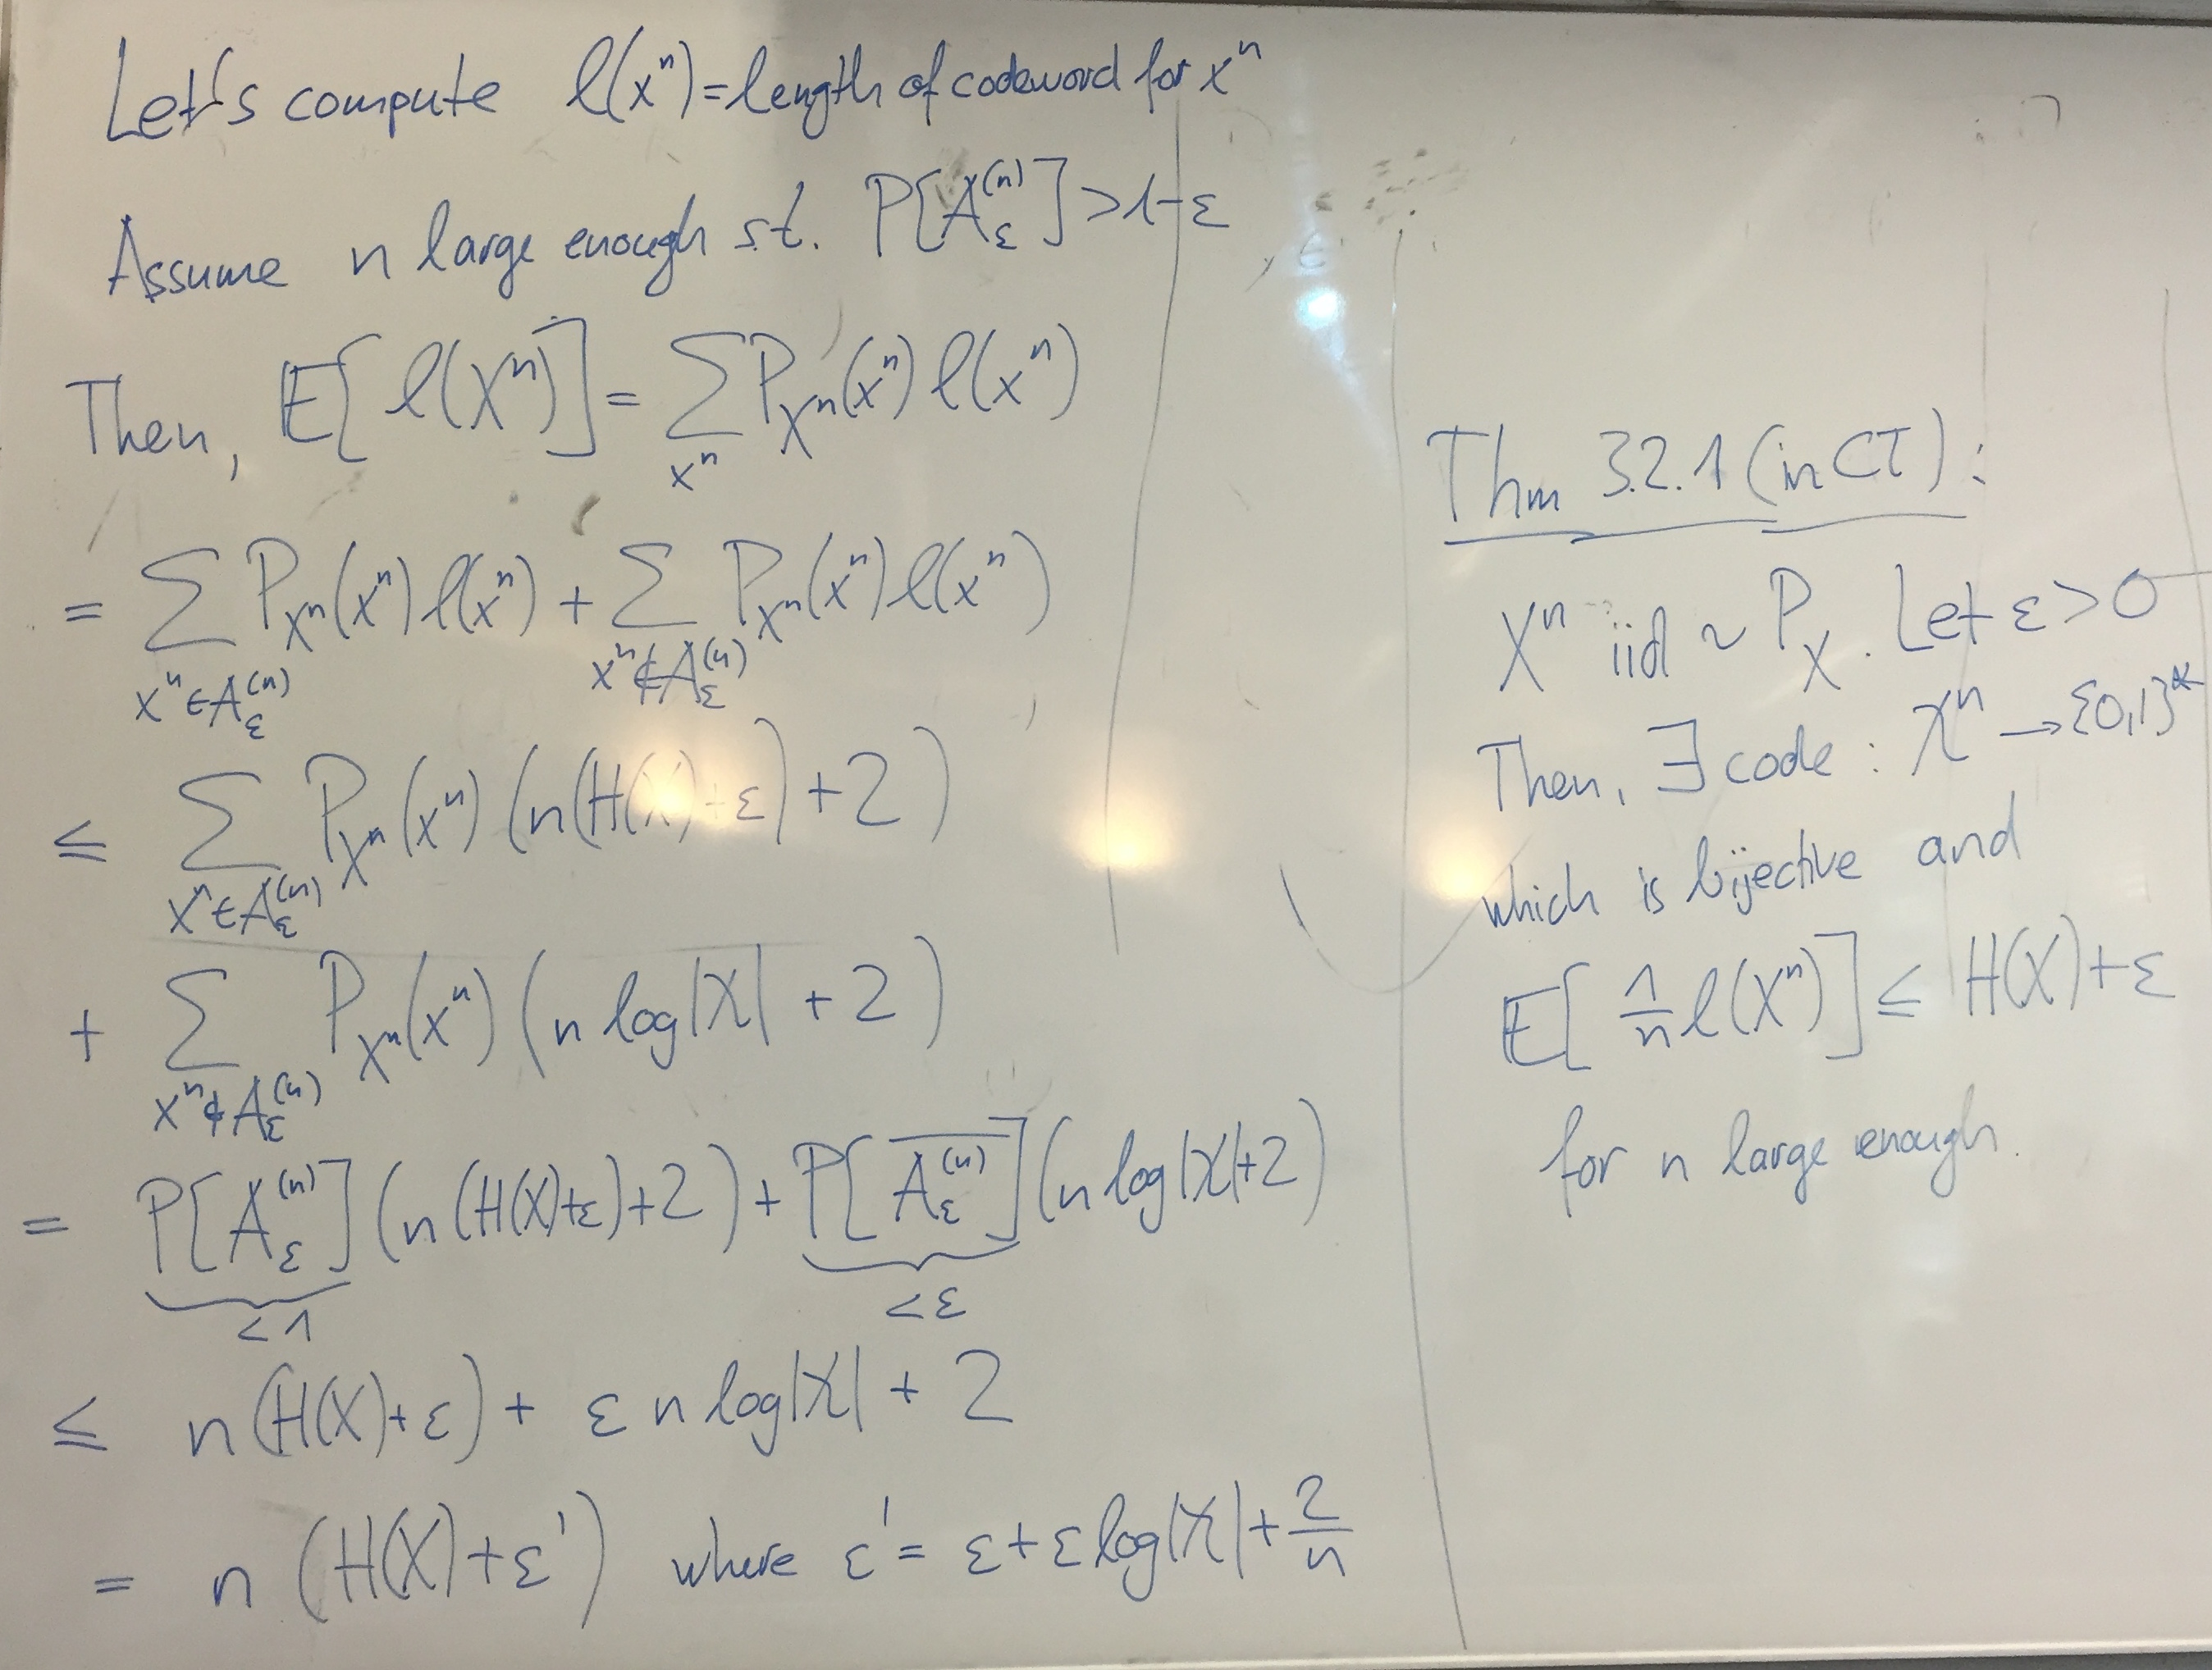 Let's compute ℓ(xⁿ) = length of codeword for xⁿ
Assume n large enough s.t. P[A_ε^(n)] > 1-ε
Then, E[ℓ(Xⁿ)] = ∑_{xⁿ} P_{Xⁿ}(xⁿ) ℓ(xⁿ)
= ∑_{xⁿ∈A_ε^(n)} P_{Xⁿ}(xⁿ) ℓ(xⁿ) + ∑_{xⁿ∉A_ε^(n)} P_{Xⁿ}(xⁿ) ℓ(xⁿ)
≤ ∑_{xⁿ∈A_ε^(n)} P_{Xⁿ}(xⁿ) (n(H(X)+ε)+2)
+ ∑_{xⁿ∉A_ε^(n)} P_{Xⁿ}(xⁿ) (n log|𝒳| + 2)
= P[A_ε^(n)] (n(H(X)+ε)+2) + P[\overline{A_ε^(n)}] (n log|𝒳|+2)
<1 <ε
≤ n(H(X)+ε) + ε n log|𝒳| + 2
= n (H(X)+ε') where ε' = ε+ε log|𝒳| + 2/n
Thm 3.2.1 (in CT):
Xⁿ iid ~ P_X. Let ε>0
Then, ∃ code: 𝒳ⁿ → {0,1}*
which is bijective and
E[1/n ℓ(Xⁿ)] ≤ H(X)+ε
for n large enough.